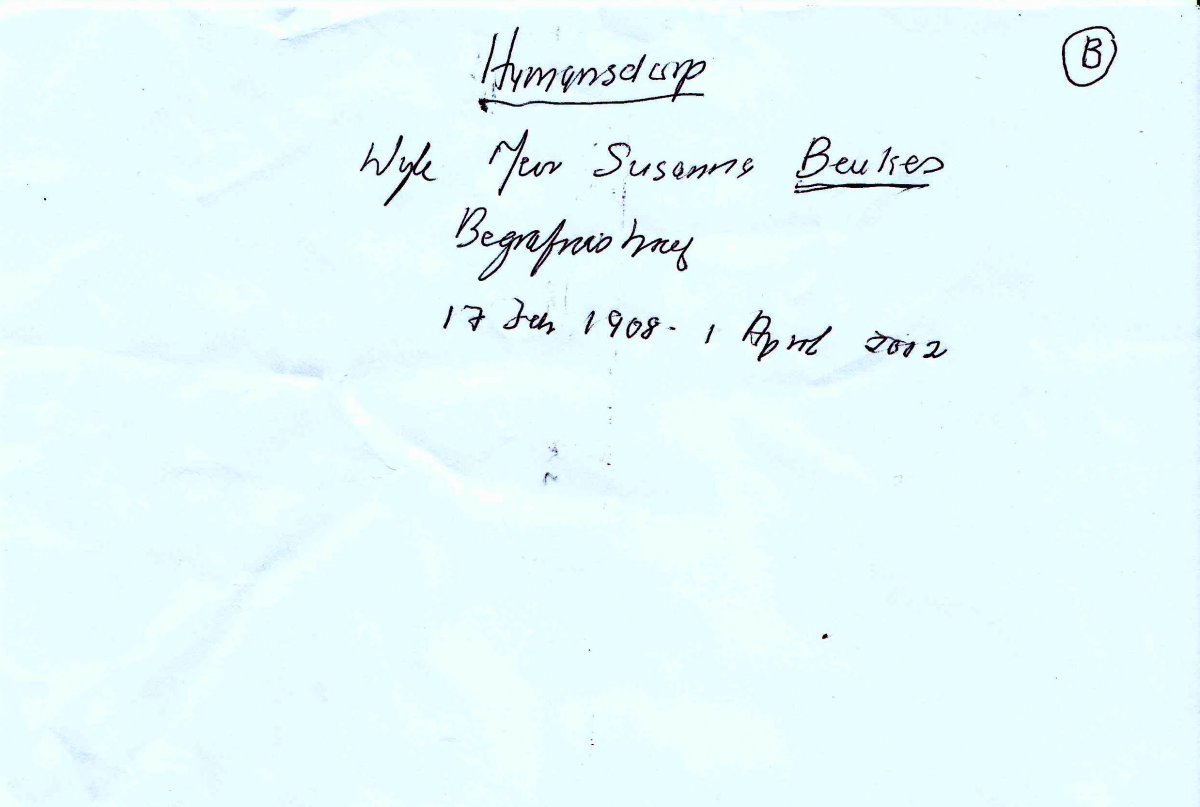 Humansdorp
B
Wyle Mev Susanna Beukes
Begrafnisbrief
17 Feb 1908 - 1 April 2002